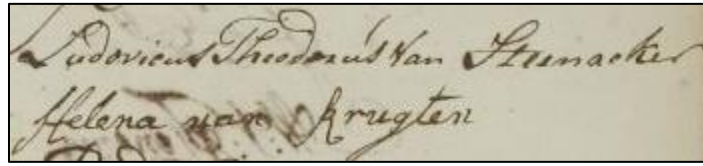 Ludovicus Theodorus Van Steenacker
Helena van Krugten